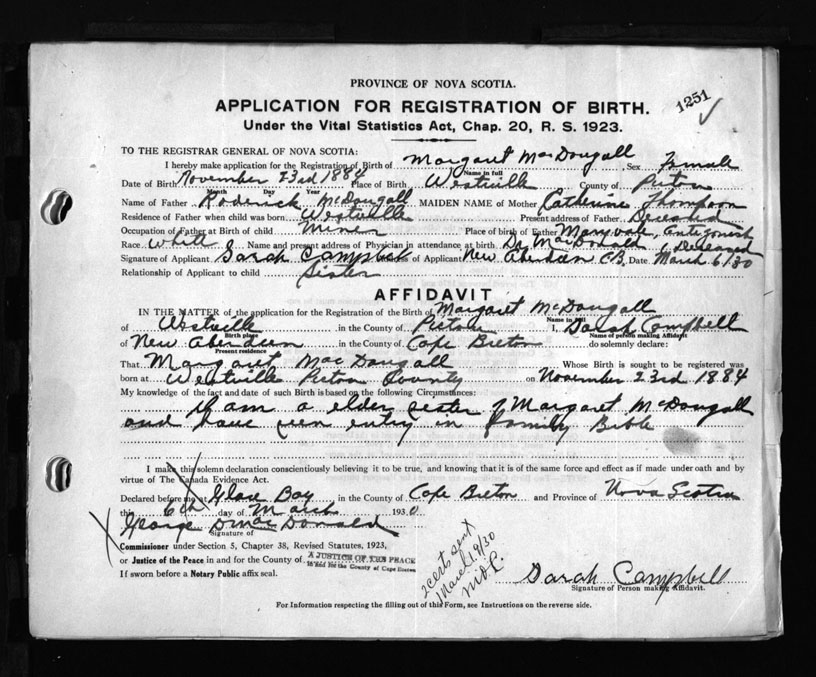 PROVINCE OF NOVA SCOTIA.
APPLICATION FOR REGISTRATION OF BIRTH.
1251
Under the Vital Statistics Act, Chap. 20, R. S. 1923.
TO THE REGISTRAR GENERAL OF NOVA SCOTIA:
I hereby make application for the Registration of Birth of Margaret MacDougall Sex Female
Name in full
Date of Birth November 23rd 1884 Place of Birth Westville County of Pictou
Month Day Year
Name of Father Roderick McDougall MAIDEN NAME of Mother Catherine Thompson
Residence of Father when child was born Westville Present address of Father Deceased
Occupation of Father at Birth of child Miner Place of birth of Father Maryvale, Antigonish
Race White Name and present address of Physician in attendance at birth Dr MacDonald, Deceased
Signature of Applicant Sarah Campbell Address of Applicant New Aberdeen C.B. Date March 6/30
Relationship of Applicant to child Sister
AFFIDAVIT
IN THE MATTER of the application for the Registration of the Birth of Margaret McDougall
Name in full
of Westville in the County of Pictou I, Sarah Campbell
Birth place Name of person making Affidavit
of New Aberdeen in the County of Cape Breton do solemnly declare:
Present residence
That Margaret MacDougall Whose Birth is sought to be registered was
born at Westville Pictou County on November 23rd 1884
My knowledge of the fact and date of such Birth is based on the following Circumstances:
I am a elder sister of Margaret McDougall
and have seen entry in family Bible
I make this solemn declaration conscientiously believing it to be true, and knowing that it is of the same force and effect as if made under oath and by
virtue of The Canada Evidence Act.
Declared before me at Glace Bay in the County of Cape Breton and Province of Nova Scotia
this 6th day of March 1930
George D MacDonald
Signature of
Commissioner under Section 5, Chapter 38, Revised Statutes, 1923,
or Justice of the Peace in and for the County of A JUSTICE OF THE PEACE
in and for the County of Cape Breton
If sworn before a Notary Public affix seal.
2 certs sent
March 19/30
Sarah Campbell
Signature of Person making Affidavit.
For Information respecting the filling out of this Form, see Instructions on the reverse side.